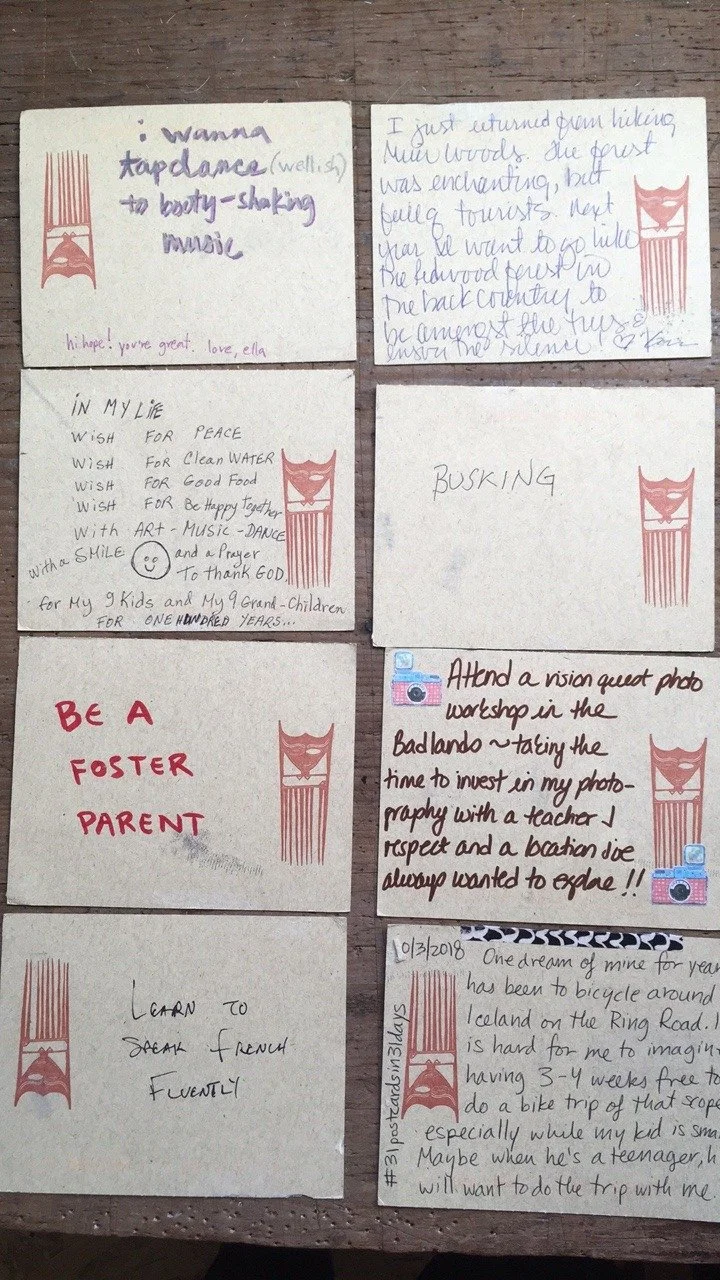 i wanna
tapdance (wellish)
to booty-shaking
music
hi hope! you're great. love, ella
I just returned from hiking
Muir Woods. The forest
was enchanting, but
full of tourists. Next
year I'd want to go hike
the redwood forest in
the back country to
be amongst the trees &
enjoy the silence
IN MY LIFE
WISH FOR PEACE
WISH FOR Clean WATER
WISH FOR Good Food
WISH FOR Be Happy Together
With ART - MUSIC - DANCE
with a SMILE and a Prayer
To thank GOD.
for My 9 Kids and My 9 Grand-Children
FOR ONE HUNDRED YEARS...
BUSKING
BE A
FOSTER
PARENT
Attend a vision quest photo
workshop in the
Badlands ~ taking the
time to invest in my photo-
graphy with a teacher I
respect and a location I've
always wanted to explore !!
LEARN TO
SPEAK FRENCH
FLUENTLY
10/3/2018
#31postcardsin31days
One dream of mine for year
has been to bicycle around
Iceland on the Ring Road. I
is hard for me to imagin
having 3-4 weeks free to
do a bike trip of that scope
especially while my kid is sma
Maybe when he's a teenager, h
will want to do the trip with me